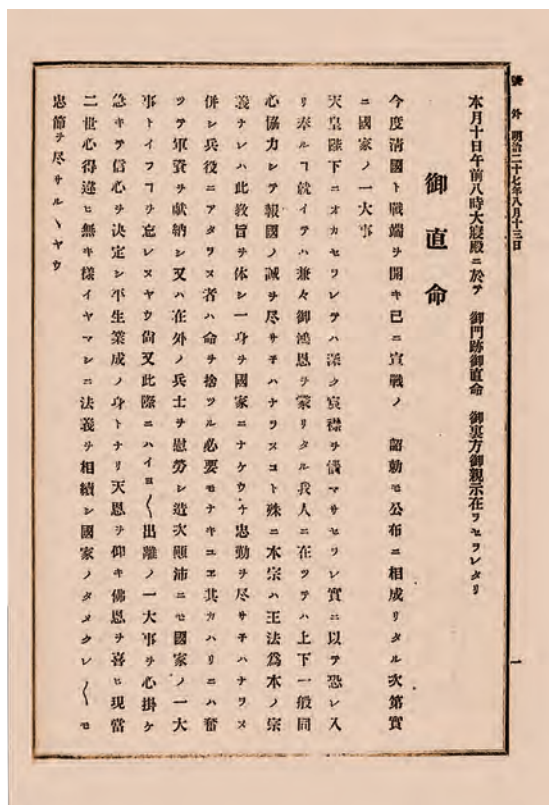 號外 明治二十七年八月十三日
本月十日午前八時大寢殿ニ於テ 御門跡御直命 御裏方御親示在ラセラレタリ
御直命
今度清國ト戰端ヲ開キ已ニ宣戰ノ 詔勅モ公布ニ相成リタル次第實
ニ國家ノ一大事
天皇陛下ニオカセラレテハ深ク宸襟ヲ惱マサセラレ實ニ以テ恐レ入
リ奉ルヿ就イテハ兼々御鴻恩ヲ蒙リタル我人ニ在ツテハ上下一般同
心協力シテ報國ノ誠ヲ尽サ子ハナラヌコト殊ニ本宗ハ王法爲本ノ宗
義ナレハ此敎旨ヲ体シ一身ヲ國家ニナケウチ忠勤ヲ尽サ子ハナラヌ
併シ兵役ニアタラヌ者ハ命ヲ捨ツル必要モナキユヱ其カハリニハ奮
ツテ軍資ヲ献納シ又ハ在外ノ兵士ヲ慰勞シ造次顚沛ニモ國家ノ一大
事トイフヿヲ忘レヌヤウ尙又此際ニハイヨ〱出離ノ一大事ヲ心掛ケ
急キテ信心ヲ決定シ平生業成ノ身トナリ天恩ヲ仰キ佛恩ヲ喜ヒ現當
二世心得違ヒ無キ樣イヤマシニ法義ヲ相續シ國家ノタメクレ〱モ
忠節ヲ尽サルヽヤウ
一